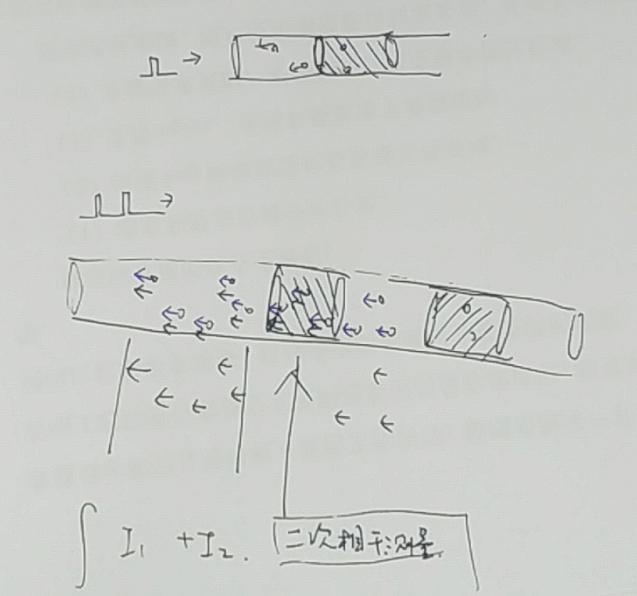 ∫ I₁ + I₂. 二次相干测量